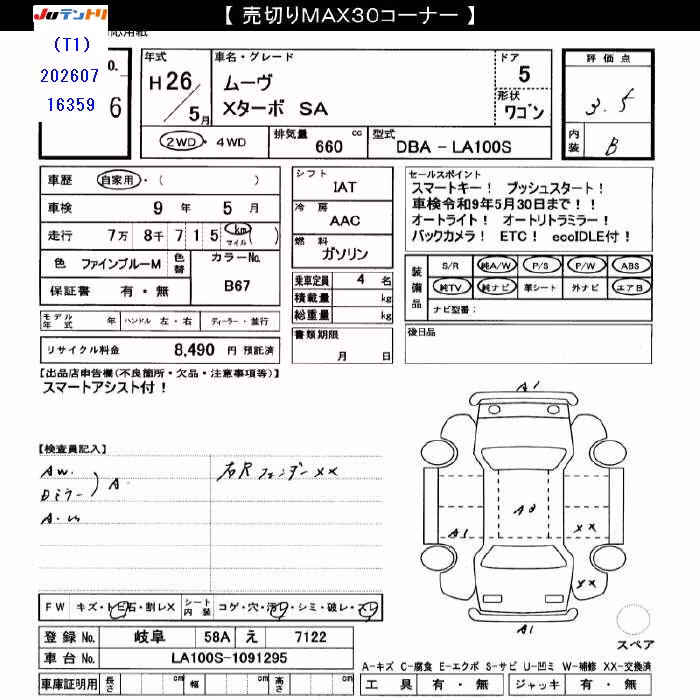 JUテントリ 【 売切りMAX30コーナー 】
応用紙
(T1)
202607
16359
o.
6
年式 H26/5月
車名・グレード ムーヴ
Xターボ SA
ドア 5
形状 ワゴン
2WD・4WD
排気量 660 cc
型式 DBA - LA100S
評価点 3.5
内装 B
車歴 自家用・( )
車検 9年 5月
走行 7万 8千 7 1 5 km マイル ( )
色 ファインブルーM 色替
カラーNo. B67
保証書 有・無
シフト IAT
冷房 AAC
燃料 ガソリン
乗車定員 4 名
積載量 kg
総重量 kg
セールスポイント
スマートキー! プッシュスタート!
車検令和9年5月30日まで!!
オートライト! オートリトラミラー!
バックカメラ! ETC! ecoIDLE付!
装備品 S/R 純A/W P/S P/W ABS
純TV 純ナビ 革シート 外ナビ エアB
ナビ型番:
モデル年式 年 ハンドル 左・右 ディーラー・並行
リサイクル料金 8,490 円 預託済
書類期限 月 日
後日品
【出品店申告欄(不良箇所・欠品・注意事項等)】
スマートアシスト付!
【検査員記入】
AW. 右Rフェンダー××
Dミラー ) A
A1
A1
A2
××
××
A1
FW キズ・トビ石・割レX シート内装 コゲ・穴・汚レ・シミ・破レ・スレ
登録No. 岐阜 58A え 7122
車台No. LA100S-1091295
車庫証明用 長さ cm 幅 cm 高さ cm
スペア
A-キズ C-腐食 E-エクボ S-サビ U-凹ミ W-補修 XX-交換済
工具 有・無 ジャッキ 有・無